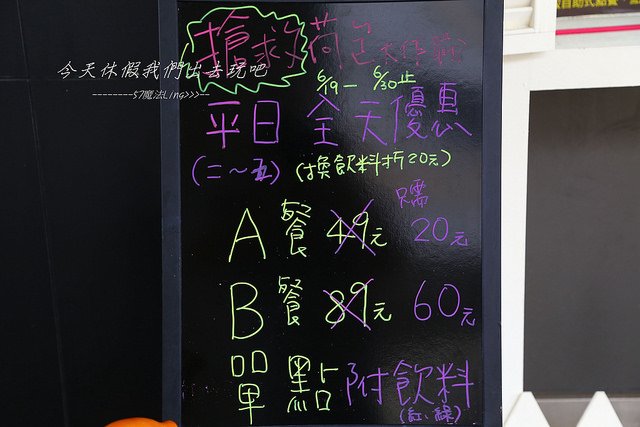 搶救荷包大作戰
今天休假我們出去玩吧
--------57魔法Ling>>>--
6/19 - 6/30止
平日全天優惠
(二~五) (換飲料折20元)
只需
A餐 49元 20元
B餐 89元 60元
單點附飲料
(紅、綠)